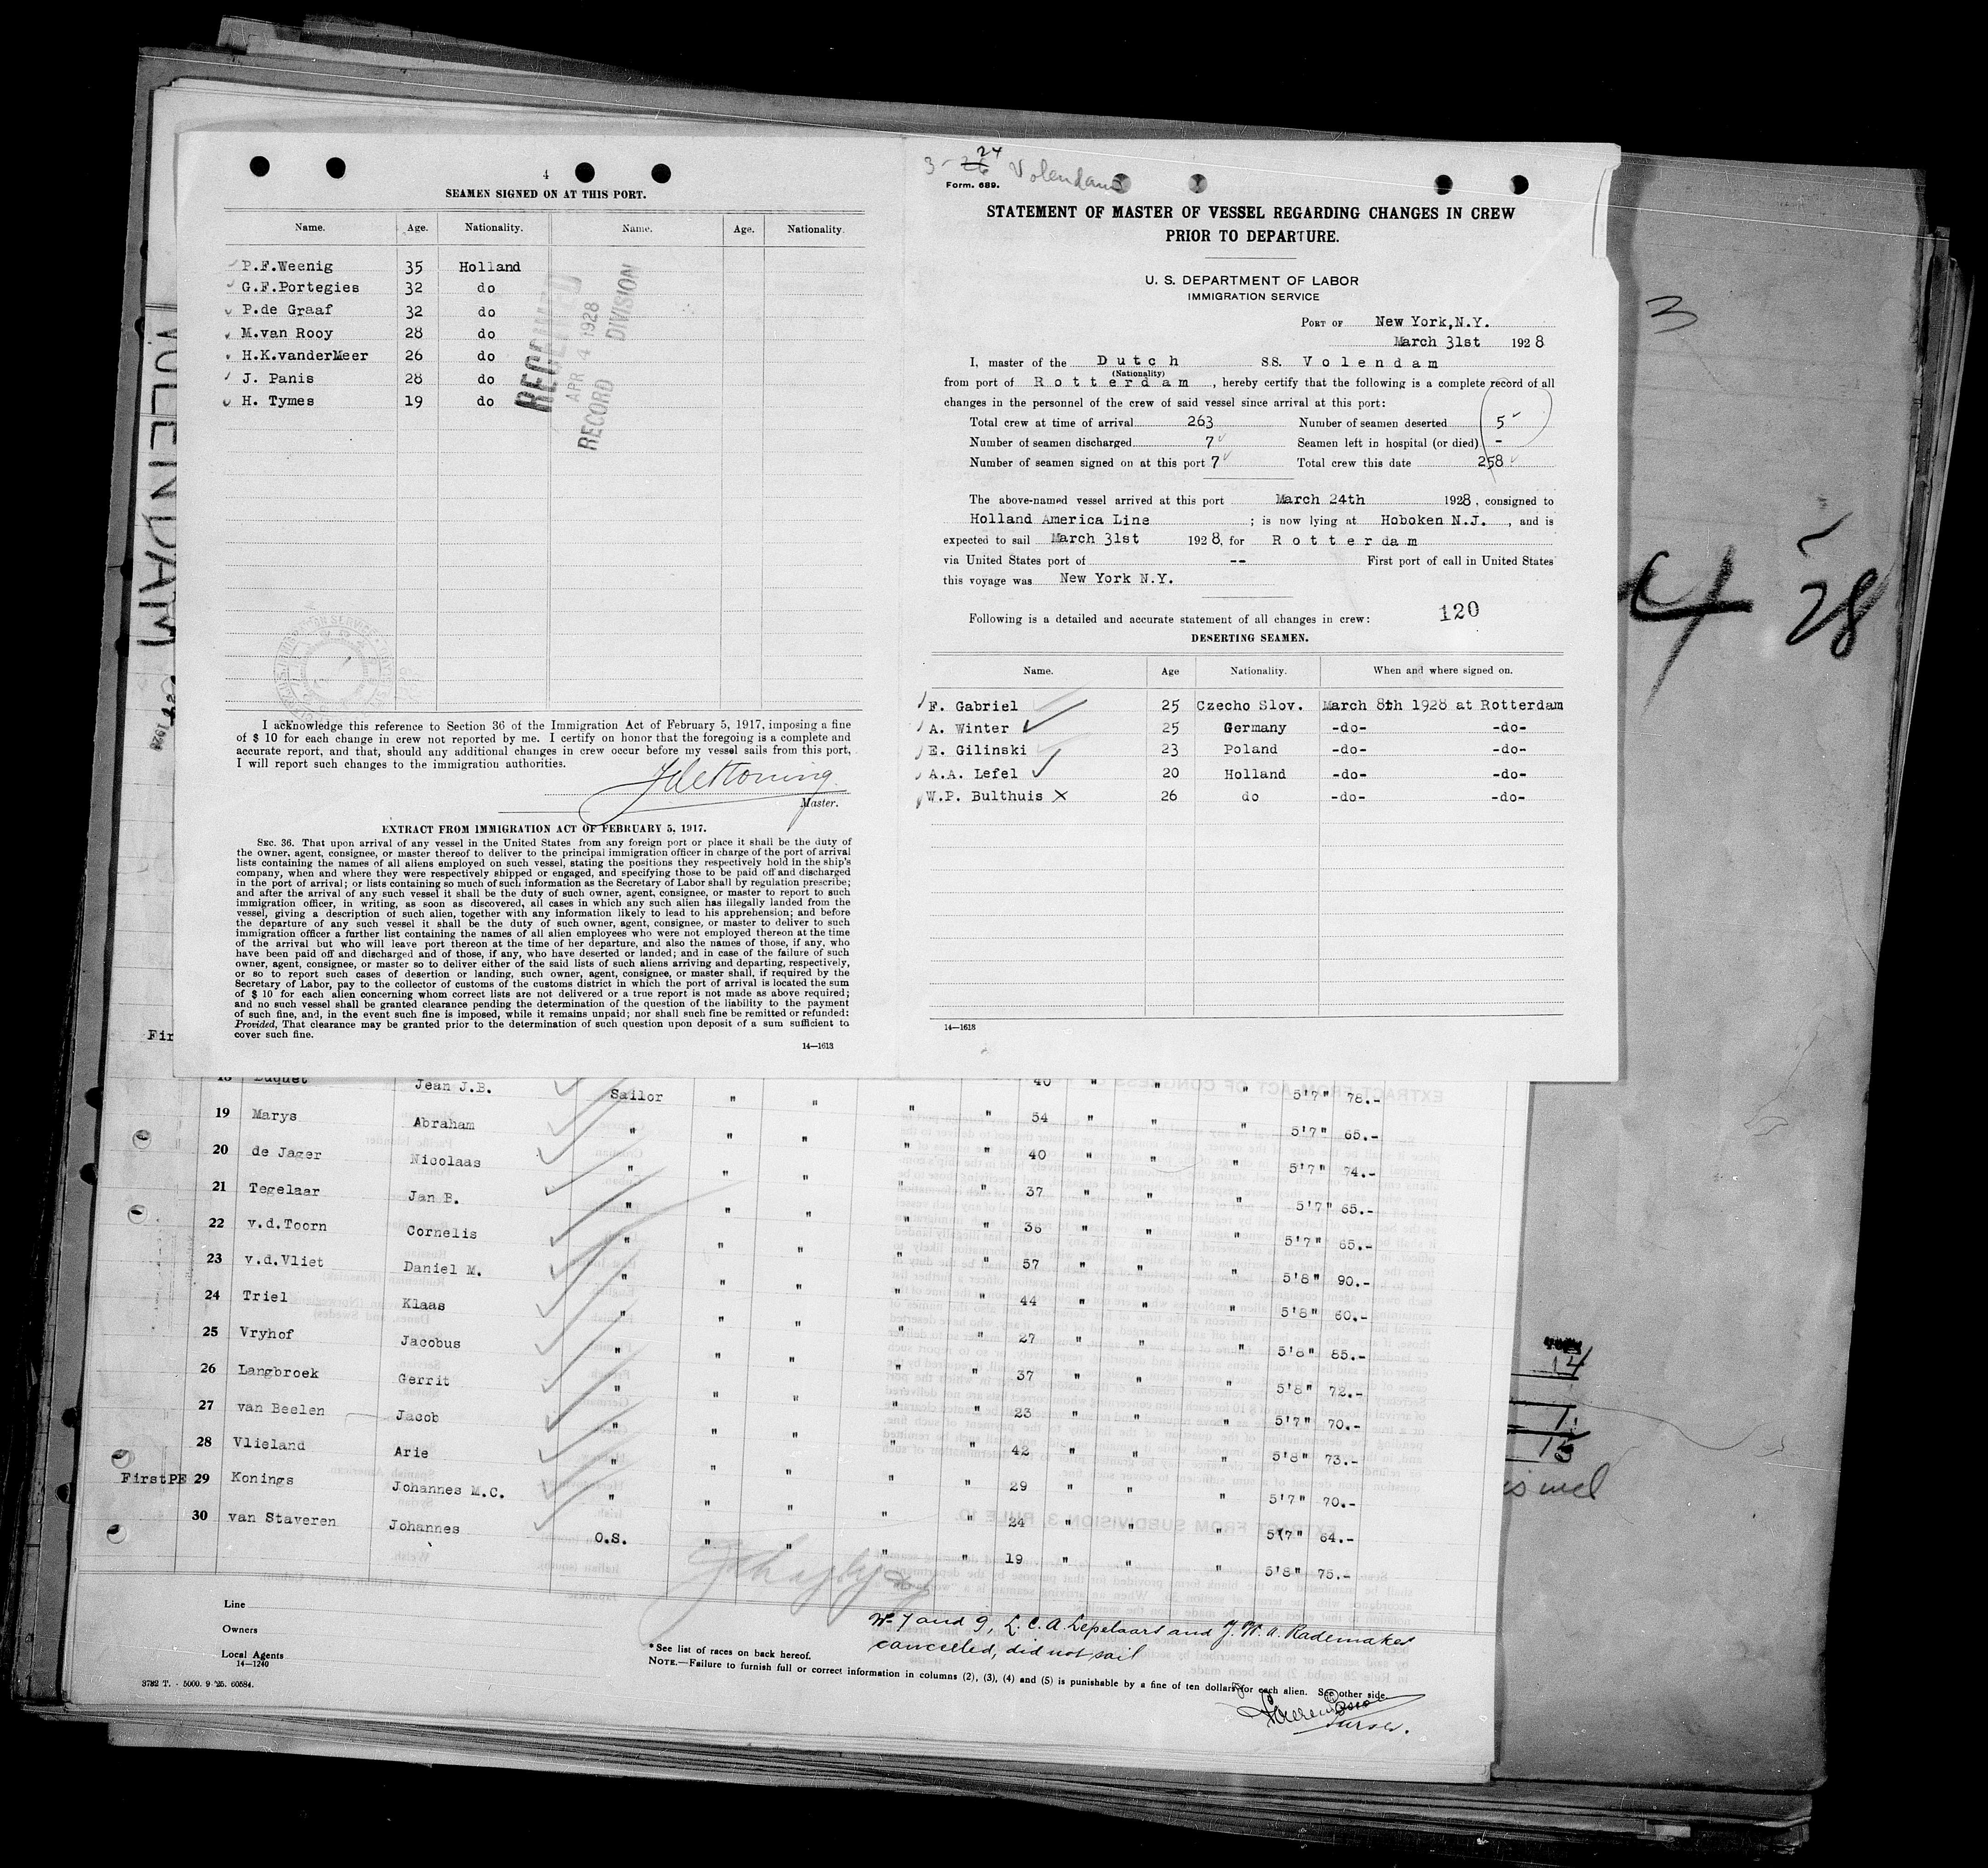 4
SEAMEN SIGNED ON AT THIS PORT.
Name. Age. Nationality. Name. Age. Nationality.
P.F.Weenig 35 Holland
G.F.Portegies 32 do
P.de Graaf 32 do
M.van Rooy 28 do
H.K.vanderMeer 26 do
J. Panis 28 do
H. Tymes 19 do
RECEIVED
APR 4 1928
RECORD DIVISION
I acknowledge this reference to Section 36 of the Immigration Act of February 5, 1917, imposing a fine
of $ 10 for each change in crew not reported by me. I certify on honor that the foregoing is a complete and
accurate report, and that, should any additional changes in crew occur before my vessel sails from this port,
I will report such changes to the immigration authorities.
Master.
EXTRACT FROM IMMIGRATION ACT OF FEBRUARY 5, 1917.
SEC. 36. That upon arrival of any vessel in the United States from any foreign port or place it shall be the duty of
the owner, agent, consignee, or master thereof to deliver to the principal immigration officer in charge of the port of arrival
lists containing the names of all aliens employed on such vessel, stating the positions they respectively hold in the ship's
company, when and where they were respectively shipped or engaged, and specifying those to be paid off and discharged
in the port of arrival; or lists containing so much of such information as the Secretary of Labor shall by regulation prescribe;
and after the arrival of any such vessel it shall be the duty of such owner, agent, consignee, or master to report to such
immigration officer, in writing, as soon as discovered, all cases in which any such alien has illegally landed from the
vessel, giving a description of such alien, together with any information likely to lead to his apprehension; and before
the departure of any such vessel it shall be the duty of such owner, agent, consignee, or master to deliver to such
immigration officer a further list containing the names of all alien employees who were not employed thereon at the time
of the arrival but who will leave port thereon at the time of her departure, and also the names of those, if any, who
have been paid off and discharged and of those, if any, who have deserted or landed; and in case of the failure of such
owner, agent, consignee, or master so to deliver either of the said lists of such aliens arriving and departing, respectively,
or so to report such cases of desertion or landing, such owner, agent, consignee, or master shall, if required by the
Secretary of Labor, pay to the collector of customs of the customs district in which the port of arrival is located the sum
of $ 10 for each alien concerning whom correct lists are not delivered or a true report is not made as above required;
and no such vessel shall be granted clearance pending the determination of the question of the liability to the payment
of such fine, and, in the event such fine is imposed, while it remains unpaid; nor shall such fine be remitted or refunded:
Provided, That clearance may be granted prior to the determination of such question upon deposit of a sum sufficient to
cover such fine.
14—1613
3-26 24 Volendam
Form. 689.
STATEMENT OF MASTER OF VESSEL REGARDING CHANGES IN CREW
PRIOR TO DEPARTURE.
U. S. DEPARTMENT OF LABOR
IMMIGRATION SERVICE
PORT OF New York,N.Y.
March 31st 1928
I, master of the Dutch SS. Volendam
(Nationality)
from port of Rotterdam, hereby certify that the following is a complete record of all
changes in the personnel of the crew of said vessel since arrival at this port:
Total crew at time of arrival 263 Number of seamen deserted 5
Number of seamen discharged 7 Seamen left in hospital (or died) -
Number of seamen signed on at this port 7 Total crew this date 258
The above-named vessel arrived at this port March 24th 1928, consigned to
Holland America Line ; is now lying at Hoboken N.J. , and is
expected to sail March 31st 1928, for Rotterdam
via United States port of -- First port of call in United States
this voyage was New York N.Y.
Following is a detailed and accurate statement of all changes in crew: 120
DESERTING SEAMEN.
Name. Age Nationality. When and where signed on.
F. Gabriel 25 Czecho Slov. March 8th 1928 at Rotterdam
A. Winter 25 Germany -do- -do-
E. Gilinski 23 Poland -do- -do-
A.A. Lefel 20 Holland -do- -do-
W.P. Bulthuis 26 do -do- -do-
14—1613
VOLENDAM
3
28
Fir
18 Duquet Jean J.B. Sailor " " " " 40 " " " 5'7" 78.-
19 Marys Abraham " " " " " 54 " " " 5'7" 65.-
20 de Jager Nicolaas " " " " " 40 " " " 5'7" 74.-
21 Tegelaar Jan B. " " " " " 37 " " " 5'7" 65.-
22 v.d.Toorn Cornelis " " " " " 36 " " " 5'7" 65.-
23 v.d.Vliet Daniel M. " " " " " 57 " " " 5'8" 90.-
24 Triel Klaas " " " " " 44 " " " 5'8" 60.-
25 Vryhof Jacobus " " " " " 27 " " " 5'8" 85.-
26 Langbroek Gerrit " " " " " 37 " " " 5'8" 72.-
27 van Beelen Jacob " " " " " 23 " " " 5'7" 70.-
28 Vlieland Arie " " " " " 42 " " " 5'8" 73.-
FirstPE 29 Konings Johannes M.C. " " " " " 29 " " " 5'7" 70.-
30 van Staveren Johannes O.S. " " " " 24 " " " 5'7" 64.-
" " " " 19 " " " 5'8" 75.-
Line
Owners
Local Agents
14—1240
3782 T. - 5000. 9 '25. 60584.
No 7 and 9, L. C. A. Lepelaars and J. W. A. Rademaker
cancelled, did not sail
* See list of races on back hereof.
NOTE.—Failure to furnish full or correct information in columns (2), (3), (4) and (5) is punishable by a fine of ten dollars for each alien. See other side.
Purser.
14